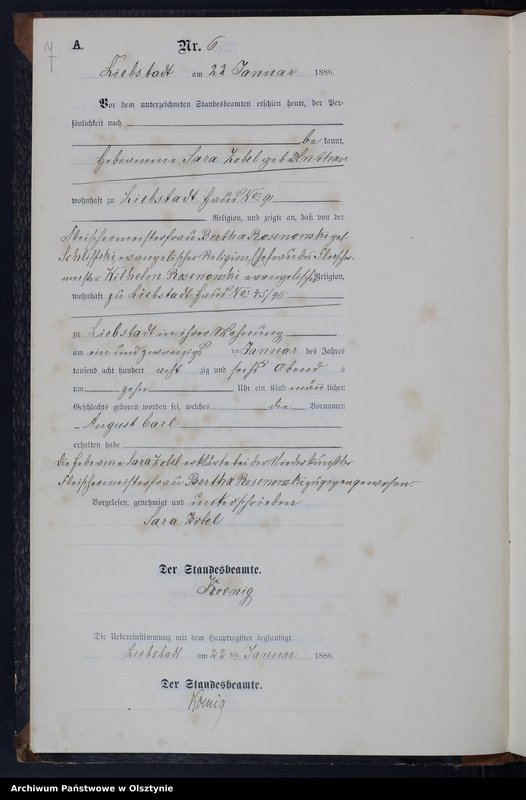 7
A.
Nr. 6
Liebstadt am 22 Januar 1886.
Vor dem unterzeichneten Standesbeamten erschien heute, der Per-
sönlichkeit nach
be kannt,
Hebeamme Sara Zobel geb
wohnhaft zu Liebstadt Haus No: 91
Religion, und zeigte an, daß von der
Fleischermeisterfrau Bertha Rosenowski geb
evangelischer Religion Ehefrau des Fleischer-
meister Wilhelm Rosenowski evangelischer Religion,
wohnhaft zu Liebstadt Haus No: 45/46
zu Liebstadt in ihrer Wohnung
am ein und zwanzigs ten Januar des Jahres
tausend acht hundert acht zig und sechs Abend s
um zehn Uhr ein Kind män lichen
Geschlechts geboren worden sei, welches die Vornamen
August Carl
erhalten habe
Die Hebeamme Sara Zobel erklärte bei der Niederkunft der
Fleischermeisterfrau Bertha Rosenowski zugegen gewesen.
Vorgelesen, genehmigt und unterschrieben
Sara Zobel
Der Standesbeamte.
Koenig
Die Uebereinstimmung mit dem Hauptregister beglaubigt.
Liebstadt am 22 ten Januar 1886.
Der Standesbeamte.
Koenig
Archiwum Państwowe w Olsztynie